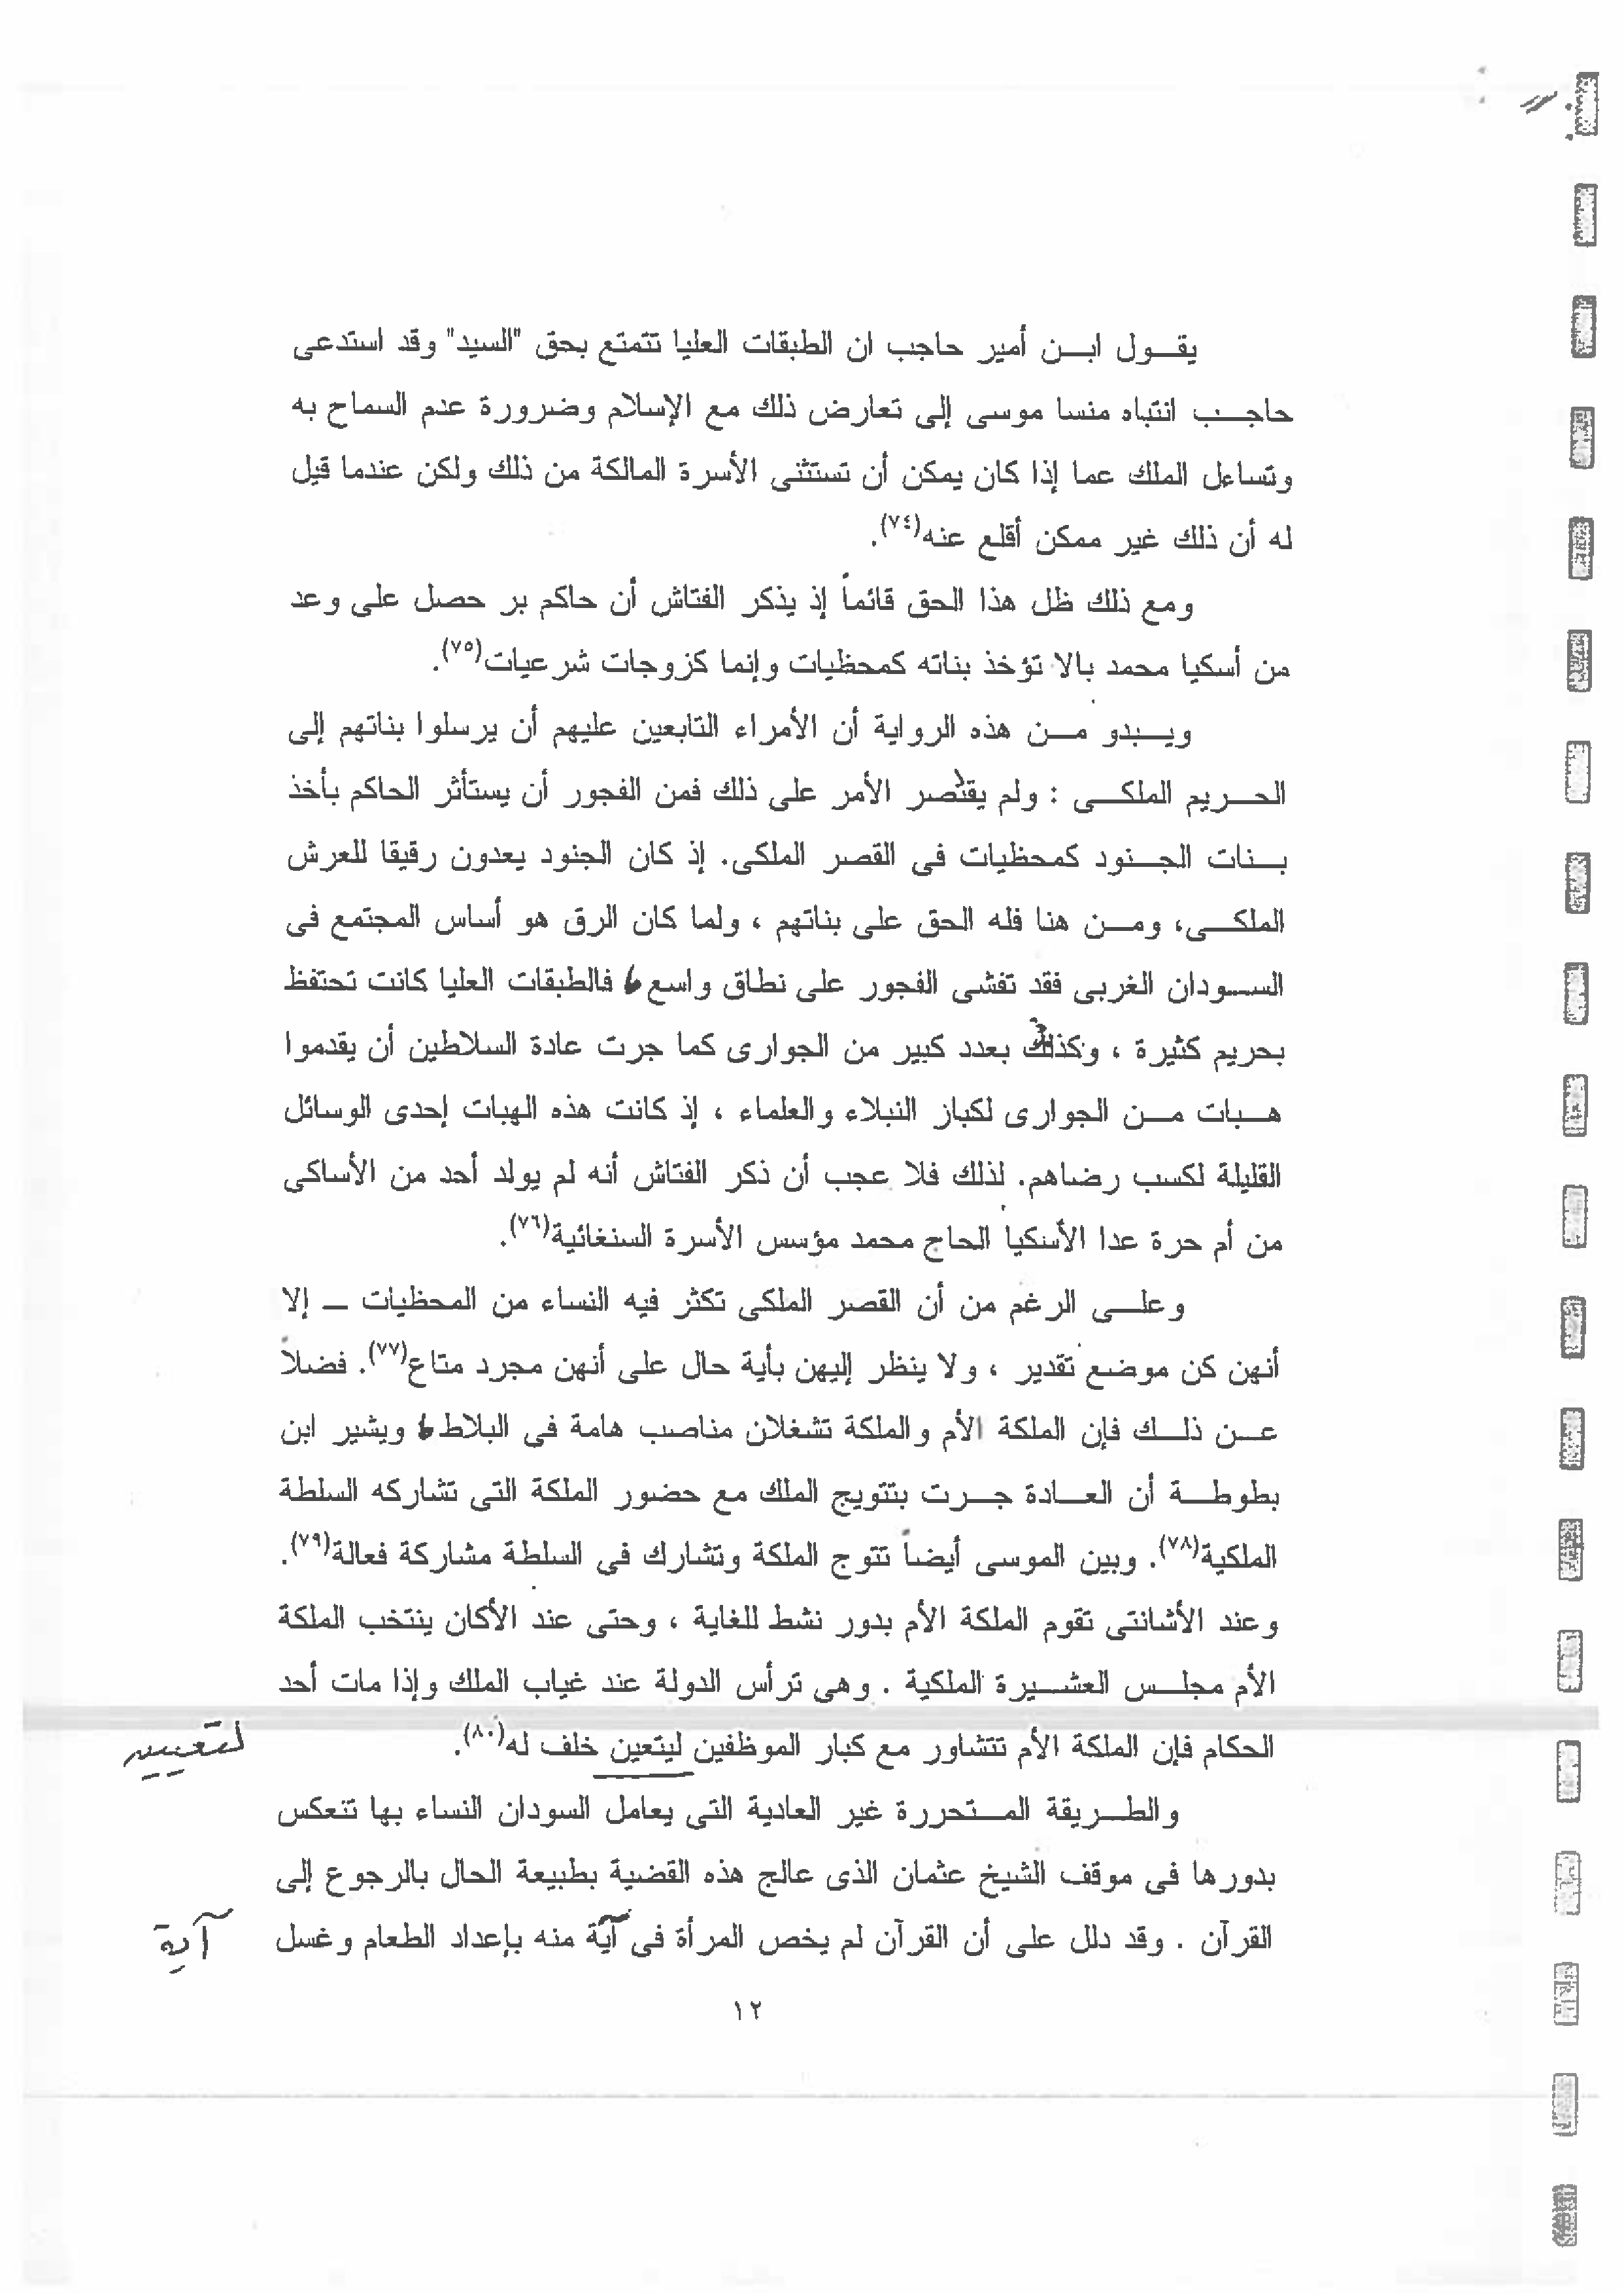 يقول ابن أمير حاجب ان الطبقات العليا تتمتع بحق "السيد" وقد استدعى
حاجب انتباه منسا موسى إلى تعارض ذلك مع الإسلام وضرورة عدم السماح به
وتساءل الملك عما إذا كان يمكن أن تستثنى الأسرة المالكة من ذلك ولكن عندما قيل
له أن ذلك غير ممكن أقلع عنه(٧٤).
ومع ذلك ظل هذا الحق قائماً إذ يذكر الفتاش أن حاكم بر حصل على وعد
من أسكيا محمد بالا تؤخذ بناته كمحظيات وإنما كزوجات شرعيات(٧٥).
ويبدو من هذه الرواية أن الأمراء التابعين عليهم أن يرسلوا بناتهم إلى
الحريم الملكى : ولم يقتصر الأمر على ذلك فمن الفجور أن يستأثر الحاكم بأخذ
بنات الجنود كمحظيات فى القصر الملكى. إذ كان الجنود يعدون رقيقا للعرش
الملكى، ومن هنا فله الحق على بناتهم ، ولما كان الرق هو أساس المجتمع فى
السودان الغربى فقد تفشى الفجور على نطاق واسع ، فالطبقات العليا كانت تحتفظ
بحريم كثيرة ، وكذلك بعدد كبير من الجوارى كما جرت عادة السلاطين أن يقدموا
هبات من الجوارى لكبار النبلاء والعلماء ، إذ كانت هذه الهبات إحدى الوسائل
القليلة لكسب رضاهم. لذلك فلا عجب أن ذكر الفتاش أنه لم يولد أحد من الأساكى
من أم حرة عدا الأسكيا الحاج محمد مؤسس الأسرة السنغائية(٧٦).
وعلى الرغم من أن القصر الملكى تكثر فيه النساء من المحظيات – إلا
أنهن كن موضع تقدير ، ولا ينظر إليهن بأية حال على أنهن مجرد متاع(٧٧). فضلاً
عن ذلك فإن الملكة الأم والملكة تشغلان مناصب هامة فى البلاط ، ويشير ابن
بطوطة أن العادة جرت بتتويج الملك مع حضور الملكة التى تشاركه السلطة
الملكية(٧٨). وبين الموسى أيضاً تتوج الملكة وتشارك فى السلطة مشاركة فعالة(٧٩).
وعند الأشانتى تقوم الملكة الأم بدور نشط للغاية ، وحتى عند الأكان ينتخب الملكة
الأم مجلس العشيرة الملكية . وهى ترأس الدولة عند غياب الملك وإذا مات أحد
الحكام فإن الملكة الأم تتشاور مع كبار الموظفين ليتعين خلف له(٨٠).
لتعيين
والطريقة المتحررة غير العادية التى يعامل السودان النساء بها تنعكس
بدورها فى موقف الشيخ عثمان الذى عالج هذه القضية بطبيعة الحال بالرجوع إلى
القرآن . وقد دلل على أن القرآن لم يخص المرأة فى آية منه بإعداد الطعام وغسل
آية
١٢